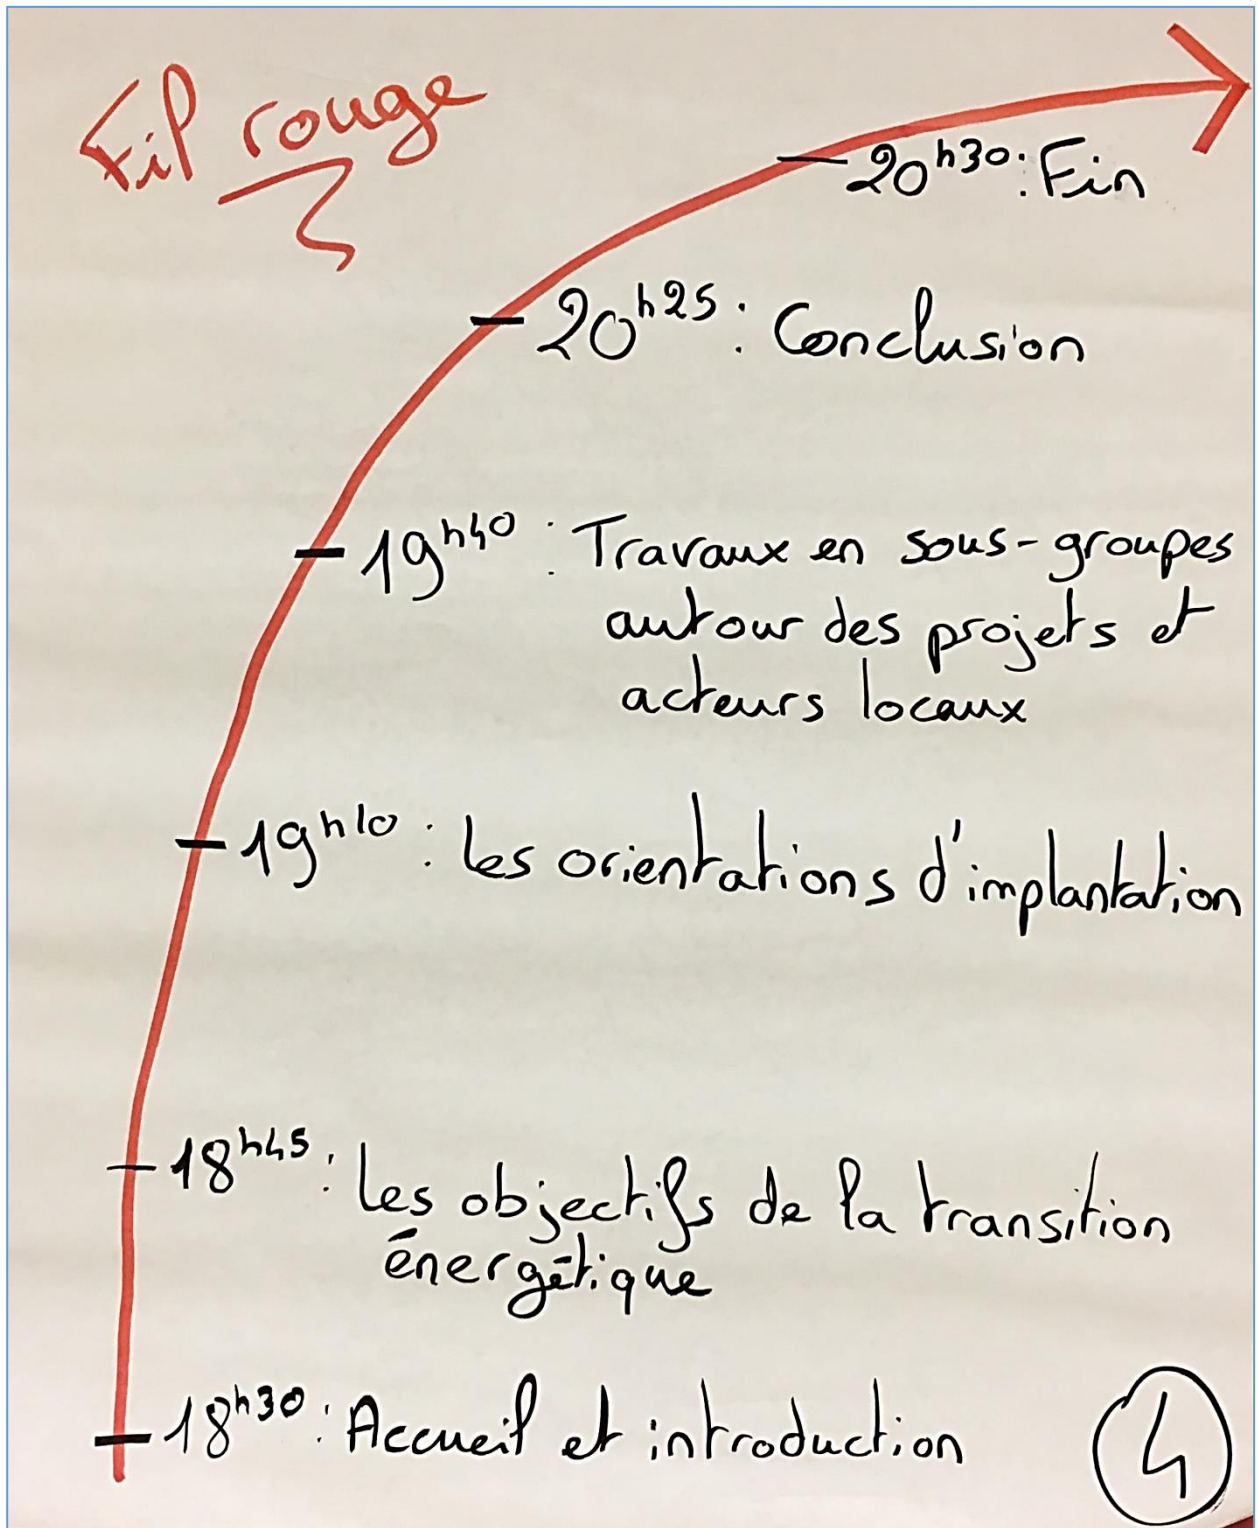 Fil rouge
20h30 : Fin
20h25 : Conclusion
19h40 : Travaux en sous-groupes
autour des projets et
acteurs locaux
19h10 : les orientations d'implantation
18h45 : les objectifs de la transition
énergétique
18h30 : Accueil et introduction
4